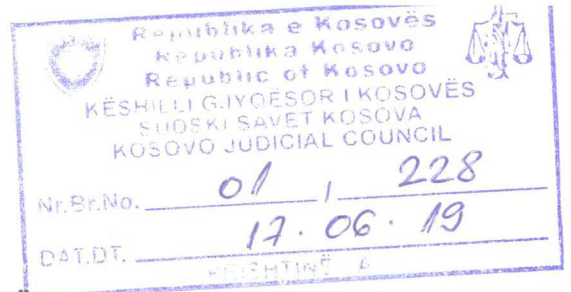 Republika e Kosovës
Republika Kosovo
Republic of Kosovo
KËSHILLI GJYQËSOR I KOSOVËS
SUDSKI SAVET KOSOVA
KOSOVO JUDICIAL COUNCIL
Nr.Br.No. 01 / 228
DAT.DT. 17.06.19
PRISHTINË